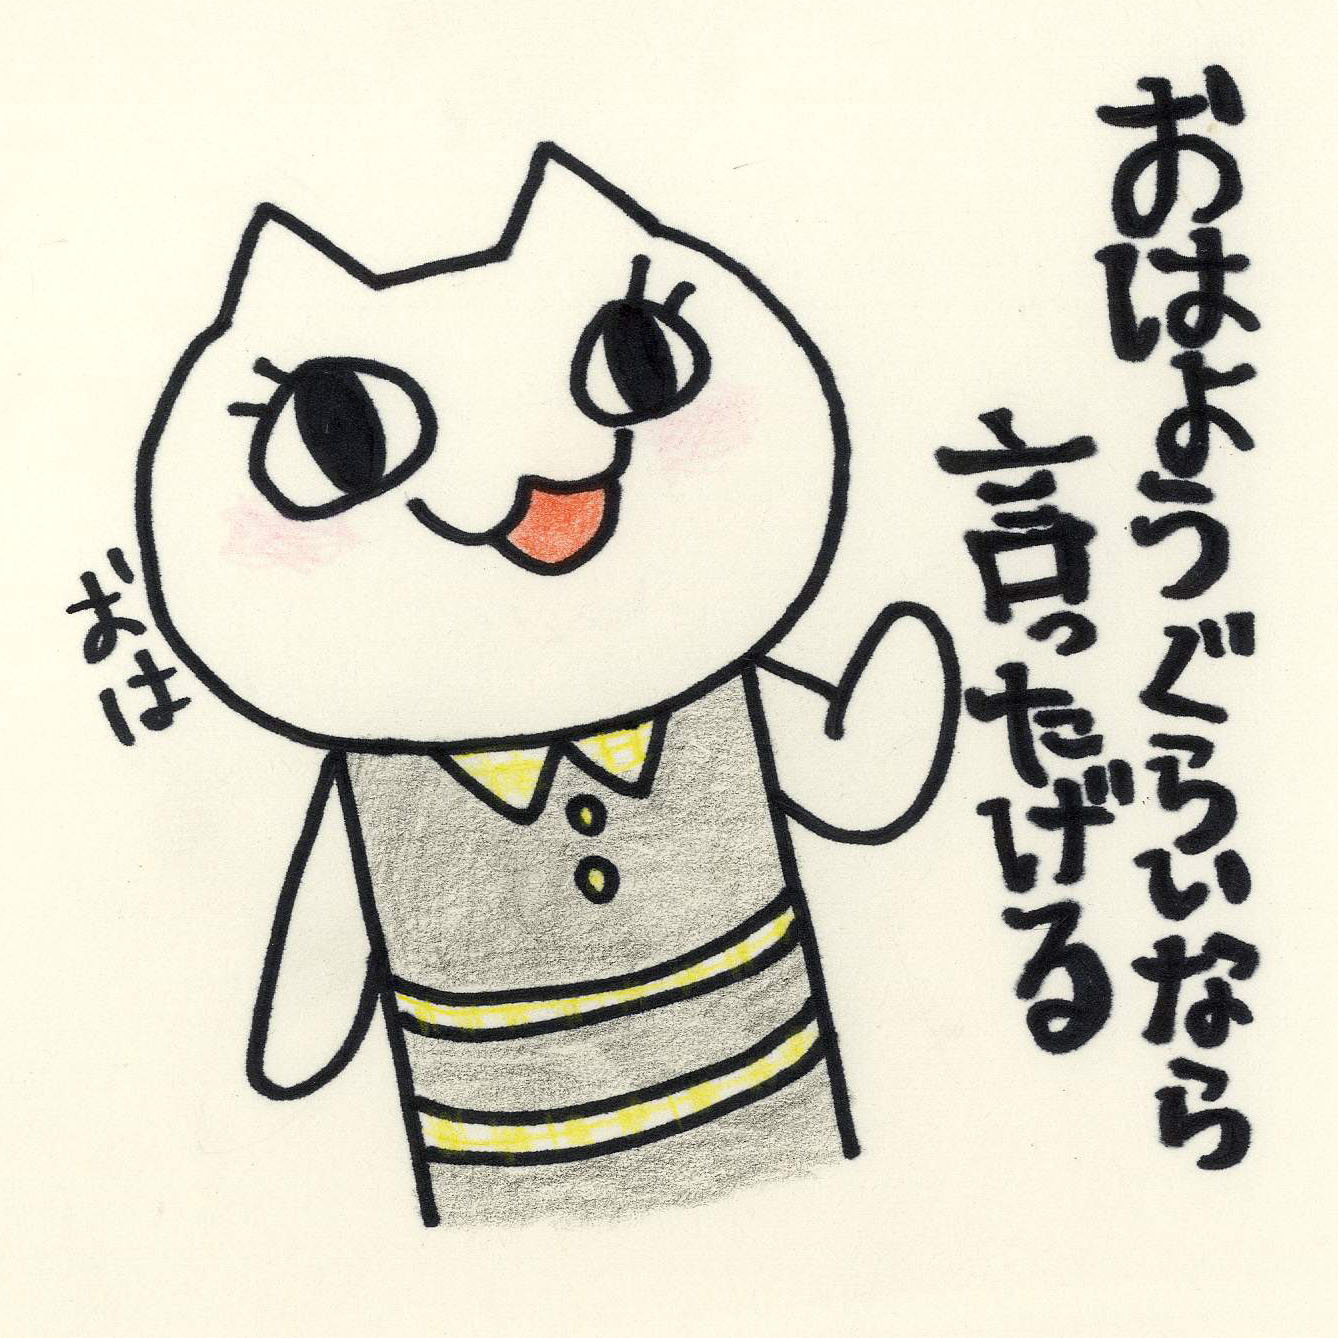 おはようぐらいなら
言ったげる
おは